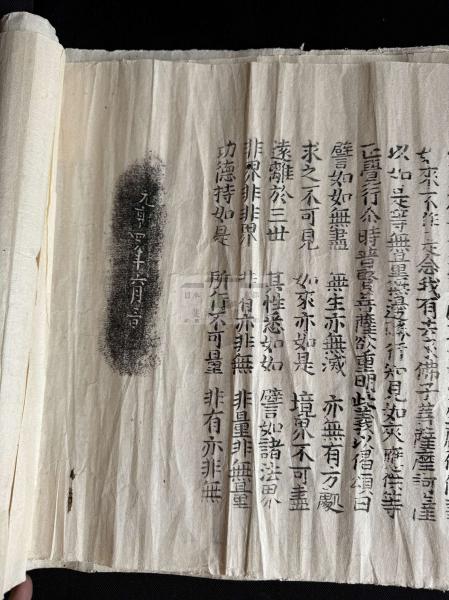 來不作是念我有佛子菩薩摩訶薩
以如是等無量無邊行知見如來應供等
正覺行尒時普賢菩薩欲重明此義以偈頌曰
譬如如無盡 無生亦無滅 亦無有方處
求之不可見 如來亦如是 境界不可盡
遠離於三世 其性悉如如 譬如諸法界
非界非非界 非有亦非無 非量非無量
功德持如是 所行不可量 非有亦非無
元四年六月